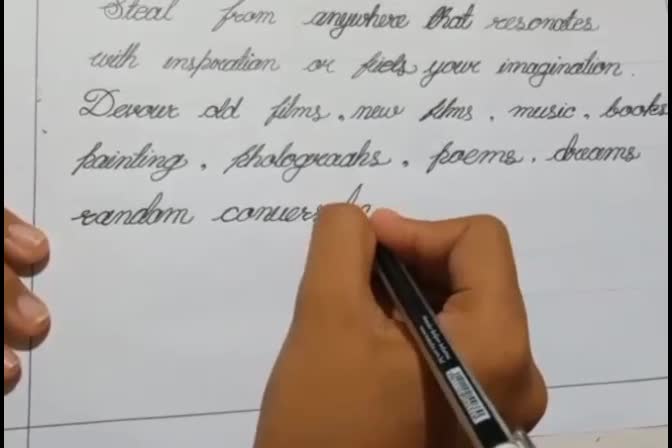 Steal from anywhere that resonates
with inspiration or fuels your imagination.
Devour old films, new films, music, books
painting, photograahs, poems, dreams
random convers